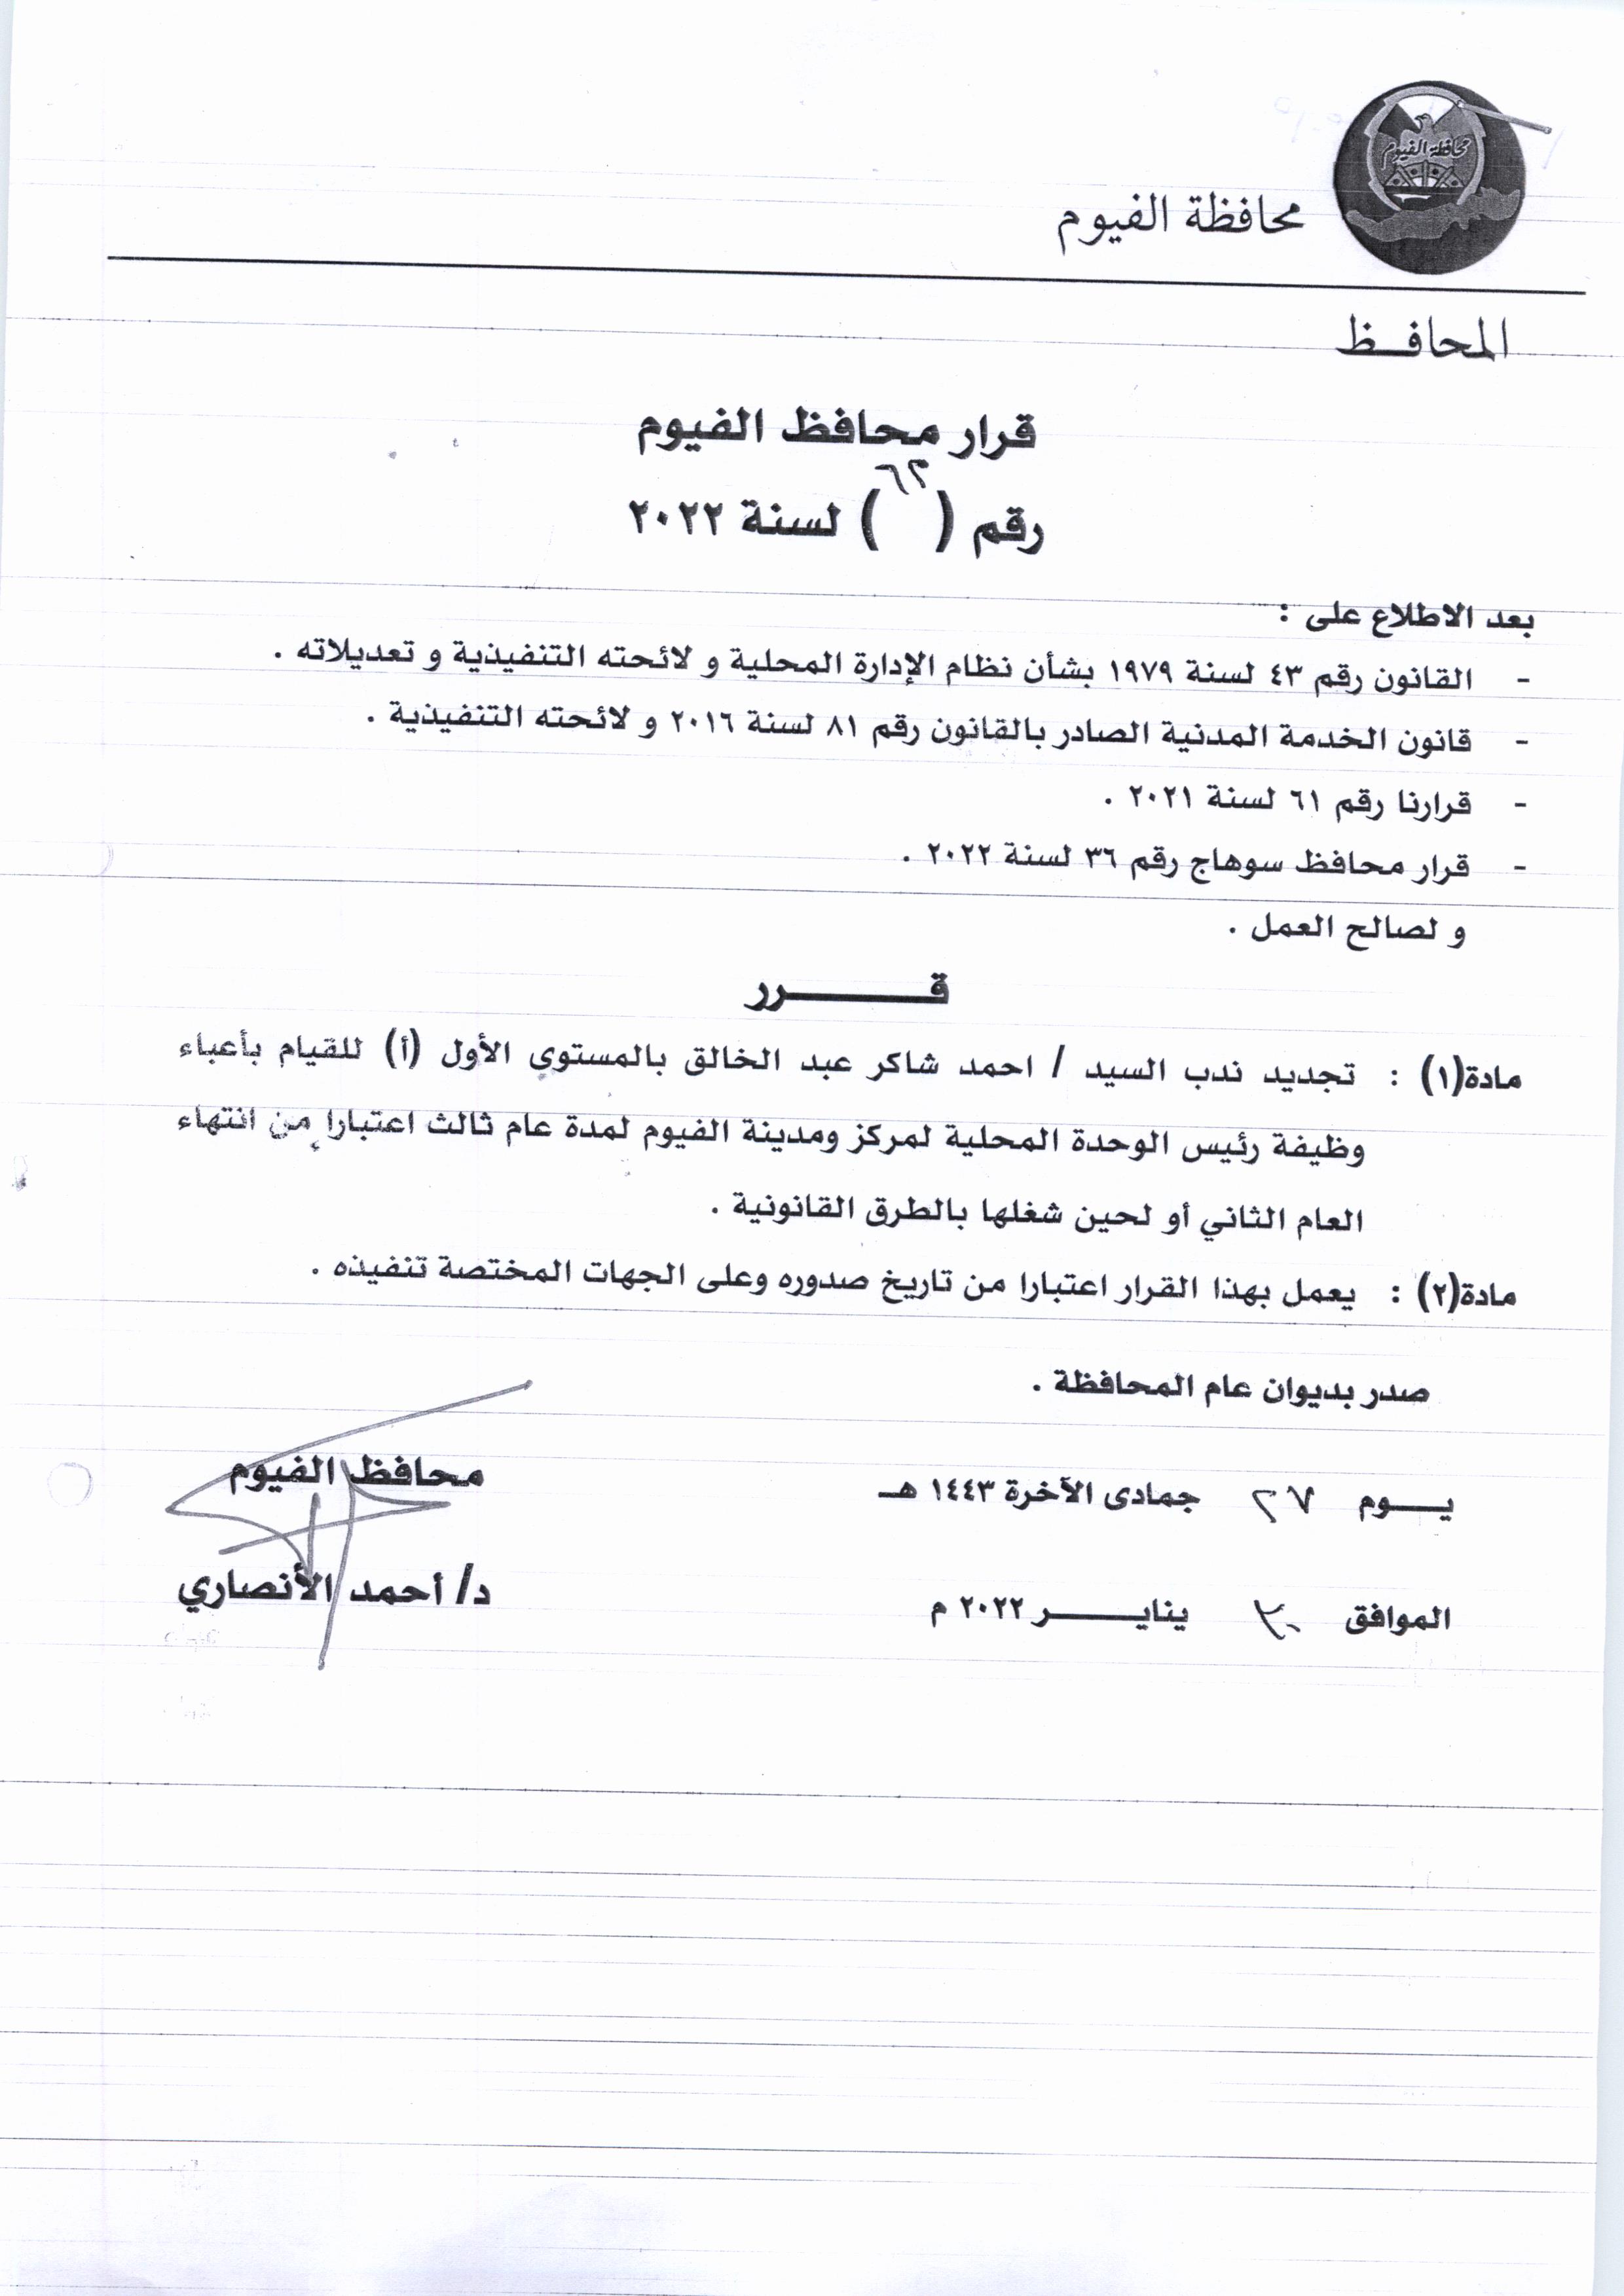 محافظة الفيوم
محافظة الفيوم
المحافــظ
قرار محافظ الفيوم
رقم ( ٦٢ ) لسنة ٢٠٢٢
بعد الاطلاع على :
- القانون رقم ٤٣ لسنة ١٩٧٩ بشأن نظام الإدارة المحلية و لائحته التنفيذية و تعديلاته .
- قانون الخدمة المدنية الصادر بالقانون رقم ٨١ لسنة ٢٠١٦ و لائحته التنفيذية .
- قرارنا رقم ٦١ لسنة ٢٠٢١ .
- قرار محافظ سوهاج رقم ٣٦ لسنة ٢٠٢٢ .
و لصالح العمل .
قــــــــرر
مادة(١) : تجديد ندب السيد / احمد شاكر عبد الخالق بالمستوي الأول (أ) للقيام بأعباء
وظيفة رئيس الوحدة المحلية لمركز ومدينة الفيوم لمدة عام ثالث اعتبارا من انتهاء
العام الثاني أو لحين شغلها بالطرق القانونية .
مادة(٢) : يعمل بهذا القرار اعتبارا من تاريخ صدوره وعلى الجهات المختصة تنفيذه .
صدر بديوان عام المحافظة .
يـــــوم ٢٧ جمادى الآخرة ١٤٤٣ هـ
محافظ الفيوم
الموافق ٣٠ ينايــــــــر ٢٠٢٢ م
د/ أحمد الأنصاري